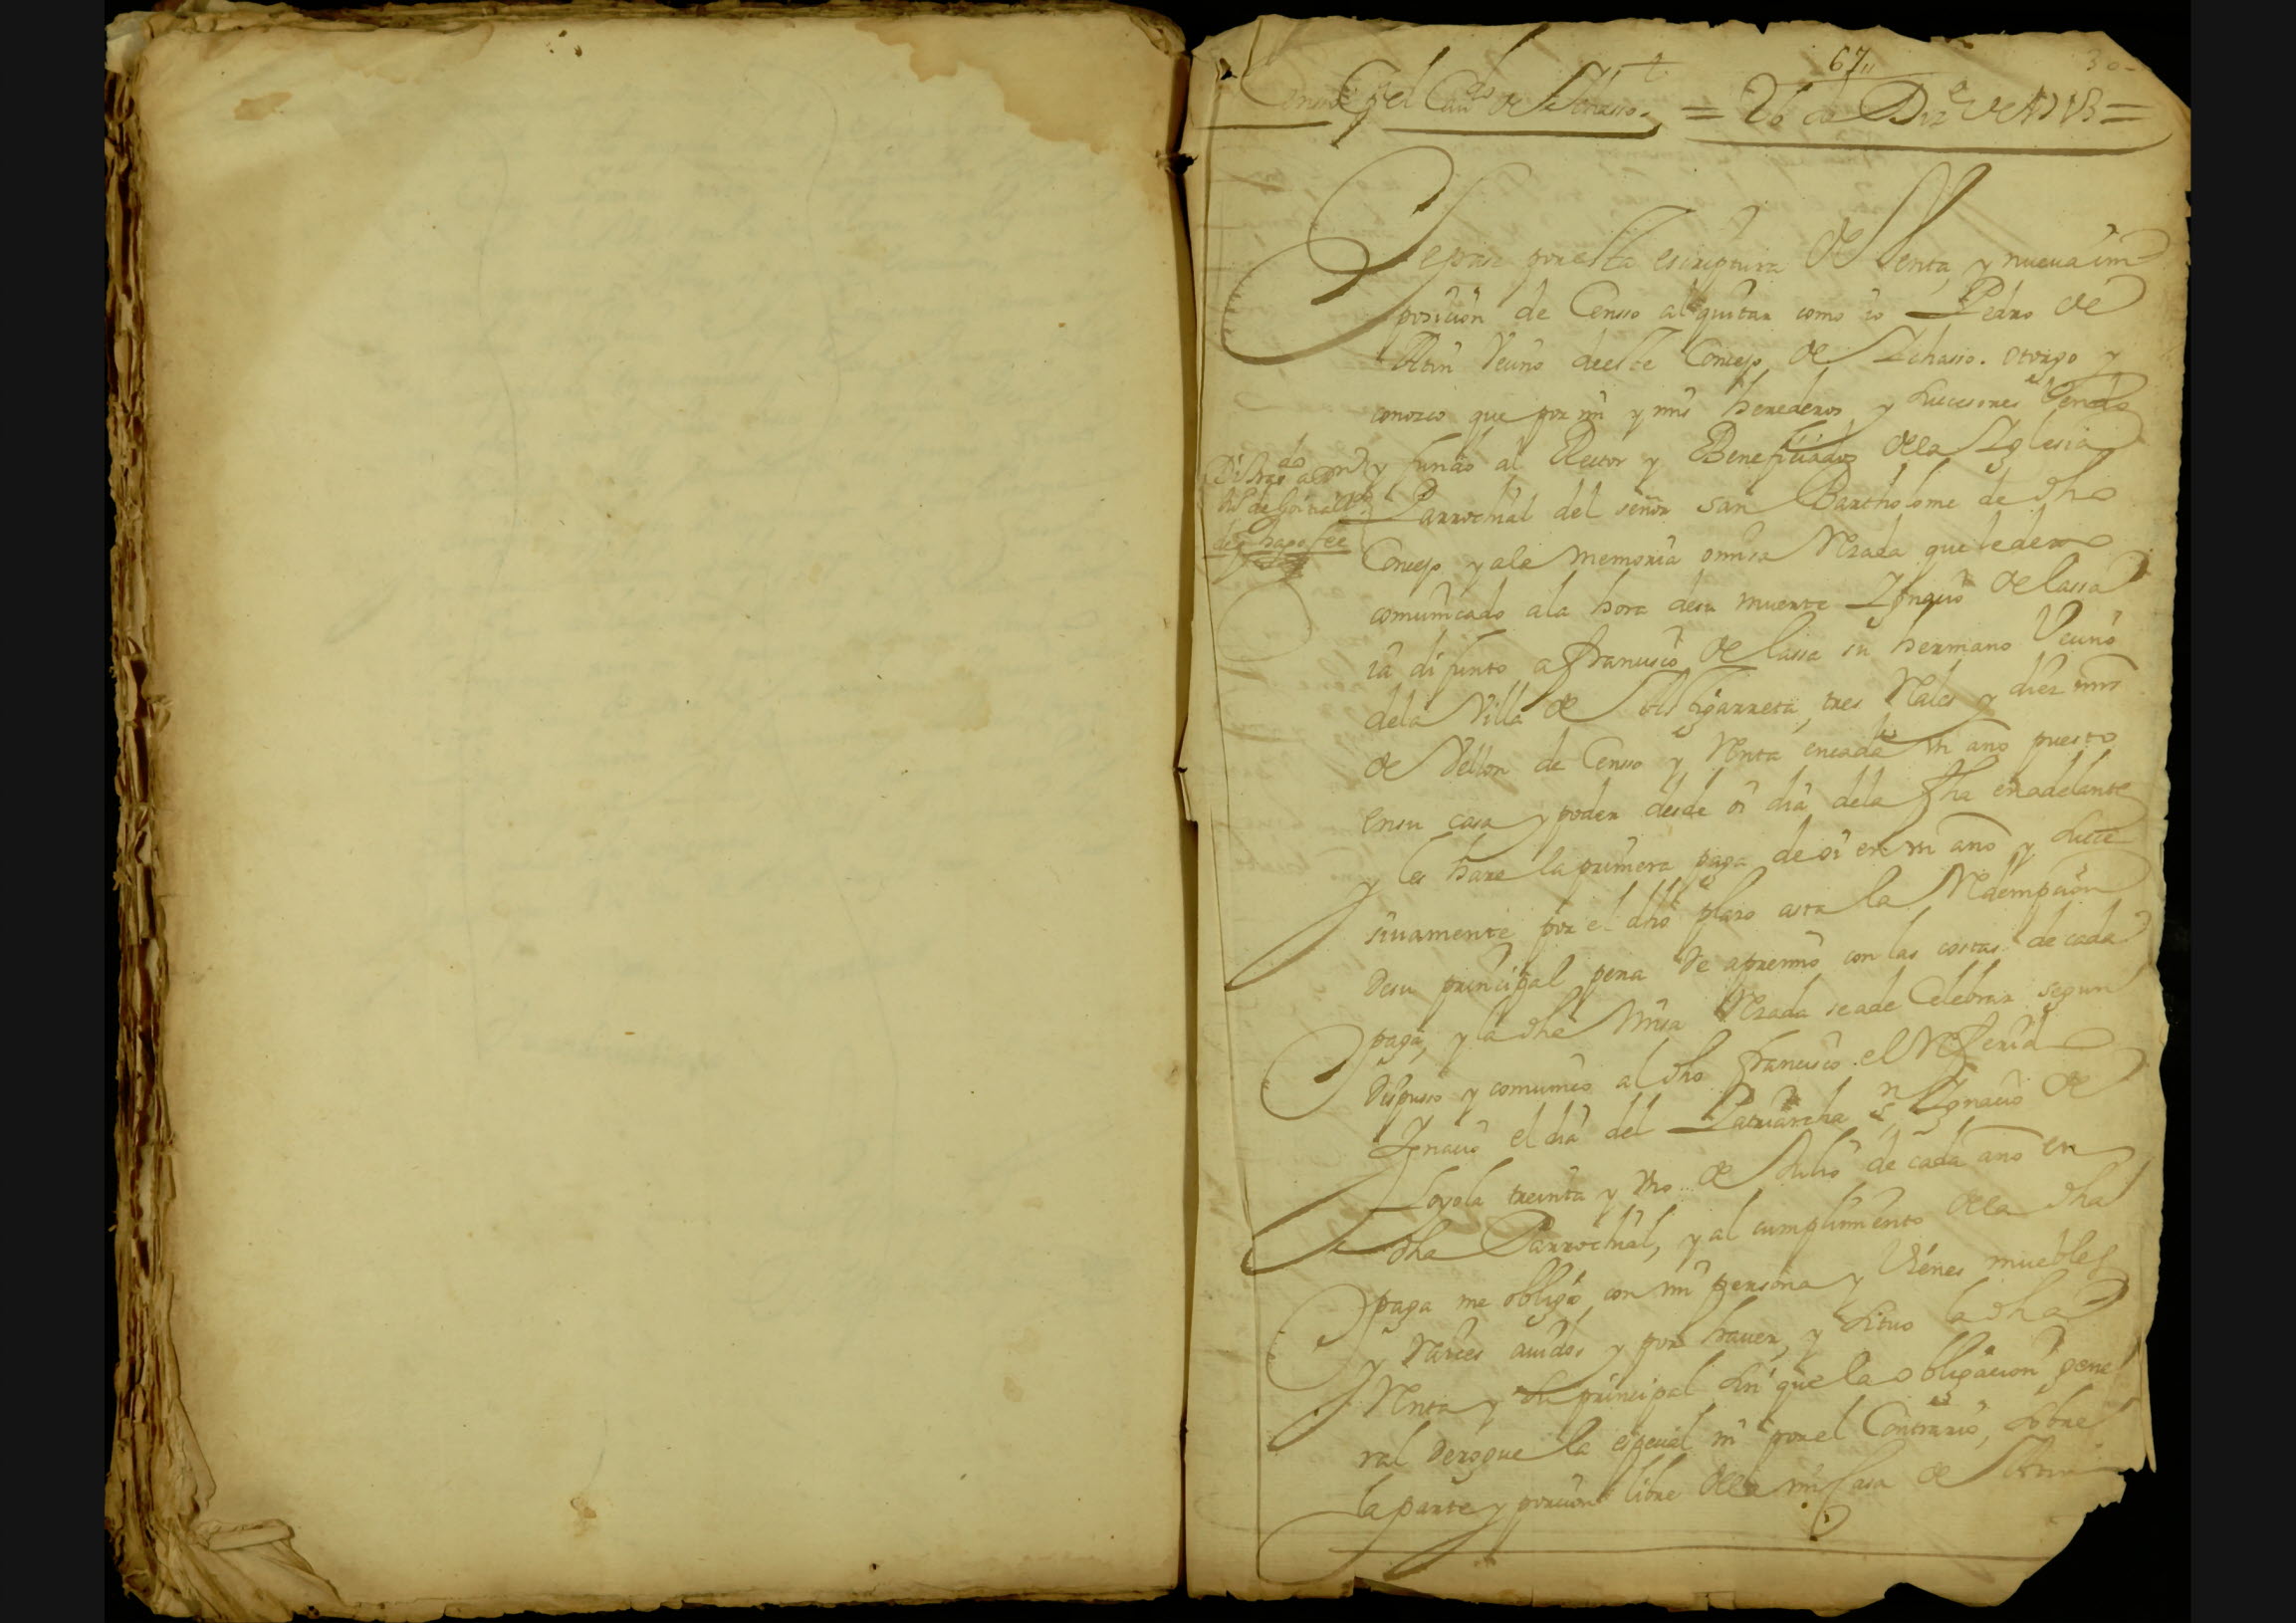 67
30
Censo del Cauº de Ichasso = 26 de Dizᵉ de
Sepase por esta escriptura de Venta, y nueua im
posicion de Censso al quitar como io Pedro de
Vecino deeste Concejo de Ichasso. otorgo y
conozco que por mi y mis herederos y suceesores Vendo
y fundo al Rector y Beneficiados dela Iglesia
Parrochial del señor san Bartholome de dho
Concejo y ala memoria omisa Rzada que le dexo
comunicado ala hora desu muerte Ignacio de lassa
ia difunto, a francisco de lassa su hermano Vecino
dela Villa de tres Rales y diez mrs
de Vellon de Censso y Renta encada vn año puesto
ensu casa y poder desde oi dia dela fha enadelante
y les hare la primera paga de oi en vn año y suce
siuamente por el dho plazo asta la Redempcion
desu principal pena de apremio con las costas de cada
paga, y la dha misa Rzada seade Celebrar segun
dispuso y comunico al dho francisco el Referido
Ignacio el dia del Patriarcha sⁿ Ignacio de
Loyola treinta y vno de Julio de cada año en
dha Parrochial, y al cumplimiento dela dha
paga me obligo con mi persona y Vienes muebles
y Raices auidos y por hauer, y situo la dha
Renta y su principal sin que la obligacion gene
ral derogue la especial ni por el Contrario, sobre
la parte y porcion libre dela mi Casa de